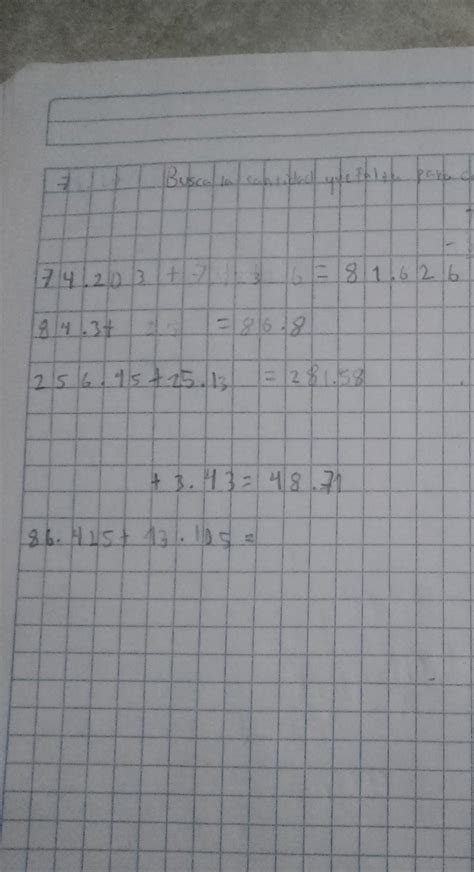 7 Busca la cantidad que falta para
74.203 + 7 = 81.626
84.3+ 25 = 86.8
256.45+25.13 = 281.58
+ 3.43 = 48.71
86.425+ 13.105 =